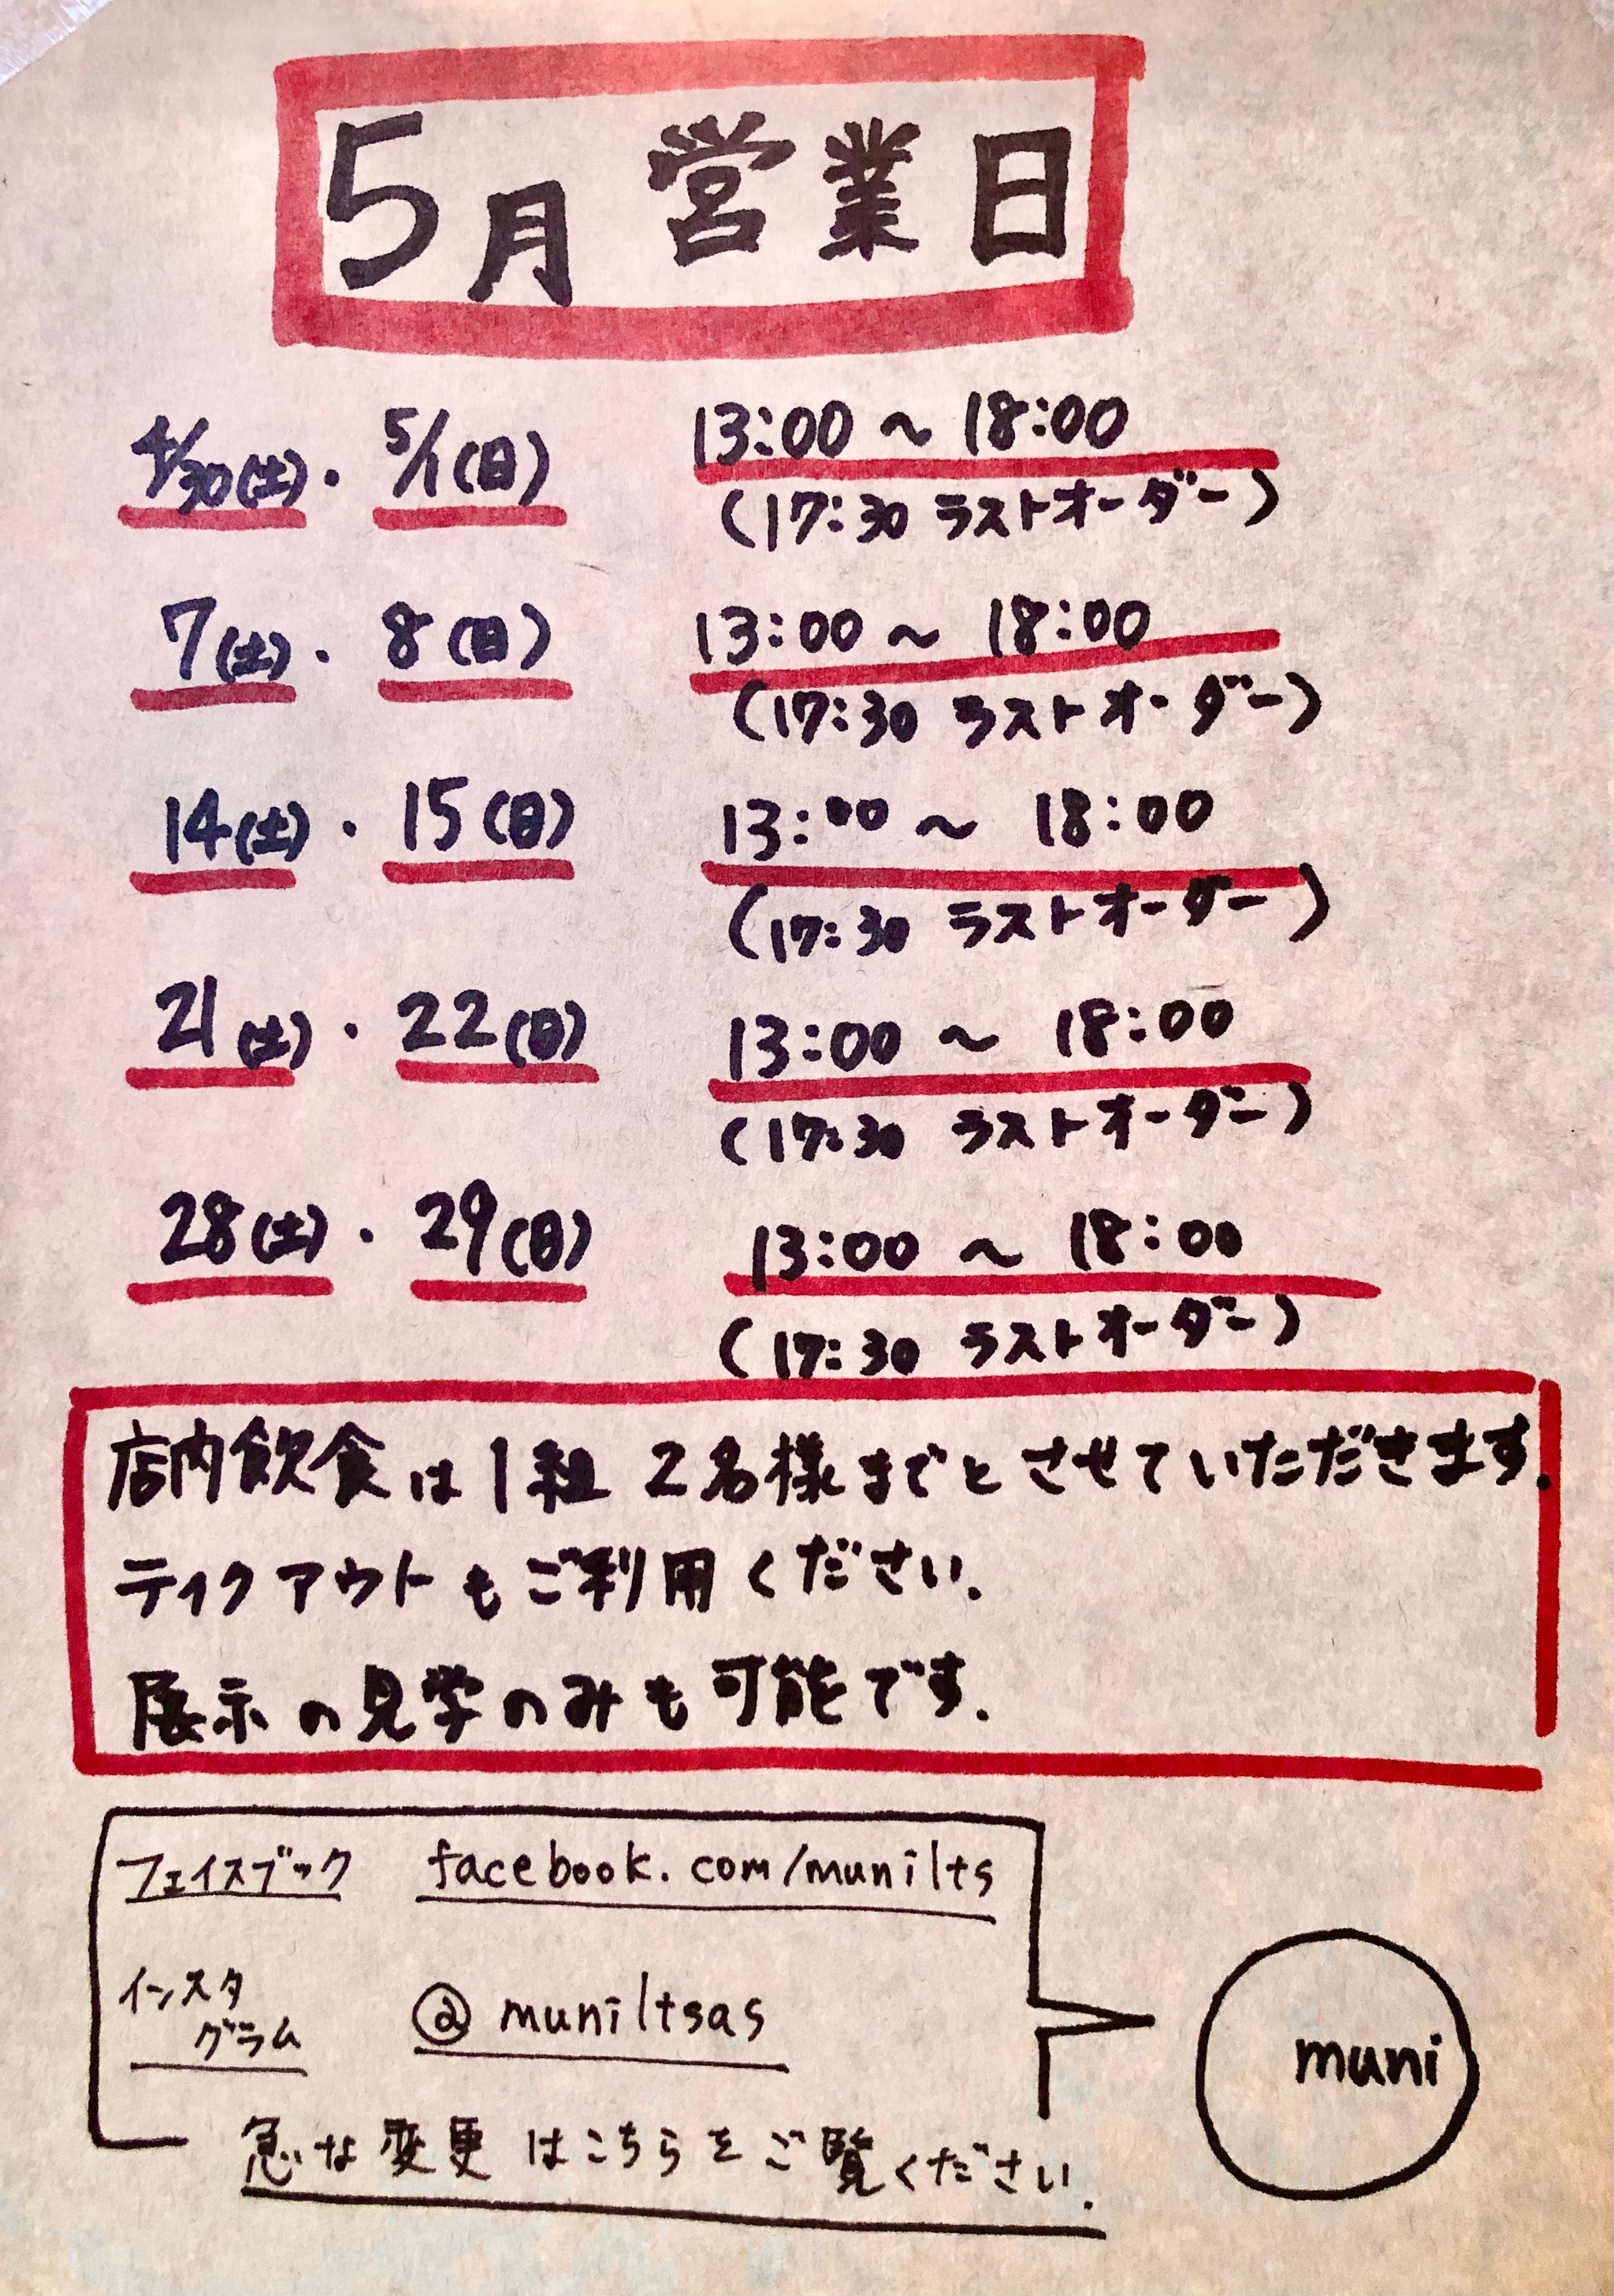 5月 営業日
4/30(土)・5/1(日) 13:00 ～ 18:00
(17:30 ラストオーダー)
7(土)・8(日) 13:00 ～ 18:00
(17:30 ラストオーダー)
14(土)・15(日) 13:00 ～ 18:00
(17:30 ラストオーダー)
21(土)・22(日) 13:00 ～ 18:00
(17:30 ラストオーダー)
28(土)・29(日) 13:00 ～ 18:00
(17:30 ラストオーダー)
店内飲食は1組 2名様までとさせていただきます.
テイクアウトもご利用ください.
展示の見学のみも可能です.
フェイスブック facebook.com/munilts
インスタ
グラム @muniltsas
muni
急な変更はこちらをご覧ください.